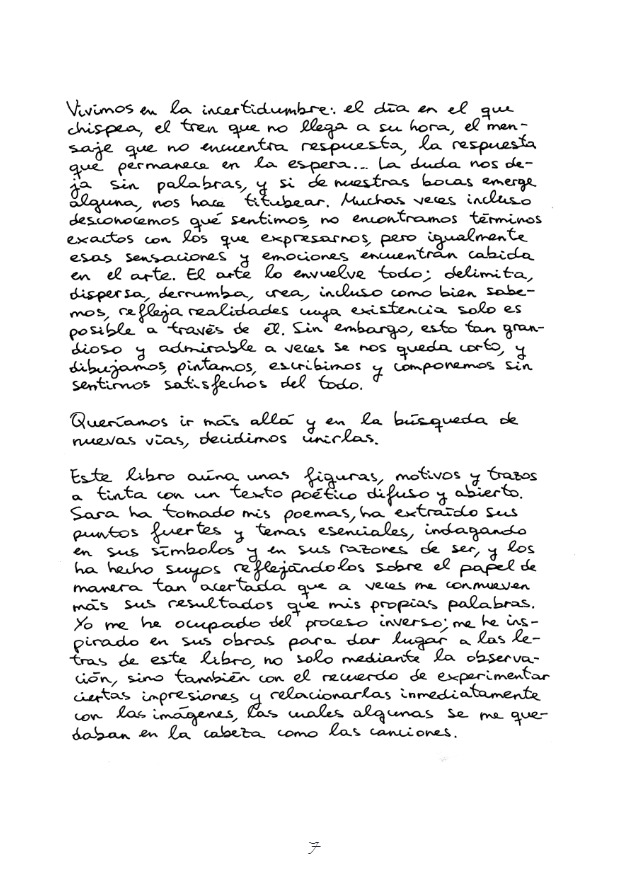 Vivimos en la incertidumbre: el día en el que
chispea, el tren que no llega a su hora, el men-
saje que no encuentra respuesta, la respuesta
que permanece en la espera... La duda nos de-
ja sin palabras, y si de nuestras bocas emerge
alguna, nos hace titubear. Muchas veces incluso
desconocemos qué sentimos, no encontramos términos
exactos con los que expresarnos, pero igualmente
esas sensaciones y emociones encuentran cabida
en el arte. El arte lo envuelve todo; delimita,
dispersa, derrumba, crea, incluso como bien sabe-
mos, refleja realidades cuya existencia solo es
posible a través de él. Sin embargo, esto tan gran-
dioso y admirable a veces se nos queda corto, y
dibujamos, pintamos, escribimos y componemos sin
sentirnos satisfechos del todo.
Queríamos ir más allá y en la búsqueda de
nuevas vías, decidimos unirlas.
Este libro aúna unas figuras, motivos y trazos
a tinta con un texto poético difuso y abierto.
Sara ha tomado mis poemas, ha extraído sus
puntos fuertes y temas esenciales, indagando
en sus símbolos y en sus razones de ser, y los
ha hecho suyos reflejándolos sobre el papel de
manera tan acertada que a veces me conmueven
más sus resultados que mis propias palabras.
Yo me he ocupado del proceso inverso; me he ins-
pirado en sus obras para dar lugar a las le-
tras de este libro, no solo mediante la observa-
ción, sino también con el recuerdo de experimentar
ciertas impresiones y relacionarlas inmediatamente
con las imágenes, las cuales algunas se me que-
daban en la cabeza como las canciones.
7